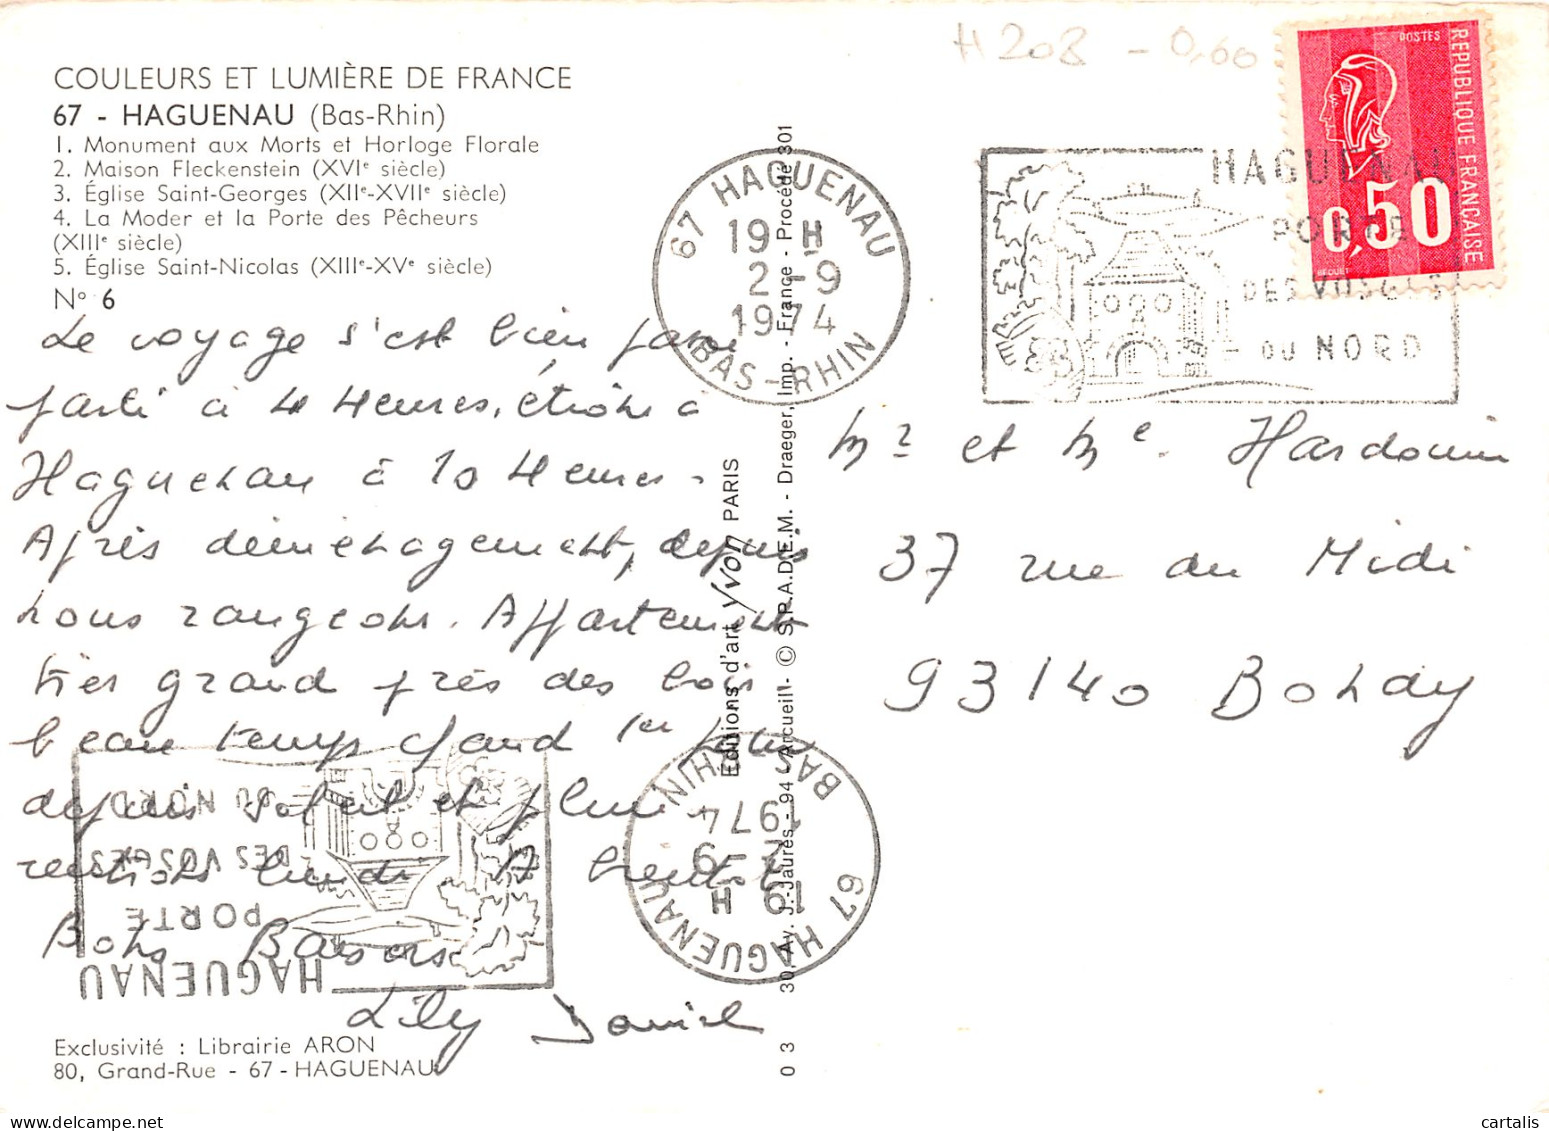 H 208 - 0,60
COULEURS ET LUMIÈRE DE FRANCE
67 - HAGUENAU (Bas-Rhin)
1. Monument aux Morts et Horloge Florale
2. Maison Fleckenstein (XVIᵉ siècle)
3. Église Saint-Georges (XIIᵉ-XVIIᵉ siècle)
4. La Moder et la Porte des Pêcheurs
(XIIIᵉ siècle)
5. Église Saint-Nicolas (XIIIᵉ-XVᵉ siècle)
N° 6
Le voyage s'est bien passé
parti à 4 Heures, étions à
Haguenau à 10 Heures.
Après déménagement, depuis
nous rangeons. Appartement
très grand près des bois
beau temps quand 1er jour
depuis soleil et pluie
rentrons lundi A bientot
Bons Baisers
Lily Daniel
Exclusivité : Librairie ARON
80, Grand-Rue - 67 - HAGUENAU
Éditions d'art Yvon PARIS
03 30, Av. J.-Jaurès - 94 - Arcueil - © S.P.A.D.E.M. - Draeger, Imp. - France - Procédé 301
67 HAGUENAU
19 H
2 - 9
1974
BAS-RHIN
HAGUENAU
PORTE
DES VOSGES
DU NORD
POSTES
REPUBLIQUE FRANÇAISE
0,50
BEQUET
Mr et Me. Hardouin
37 rue du Midi
93140 Bondy
67 HAGUENAU
19 H
2 - 9
1974
BAS-RHIN
HAGUENAU
PORTE
DES VOSGES
DU NORD
cartalis